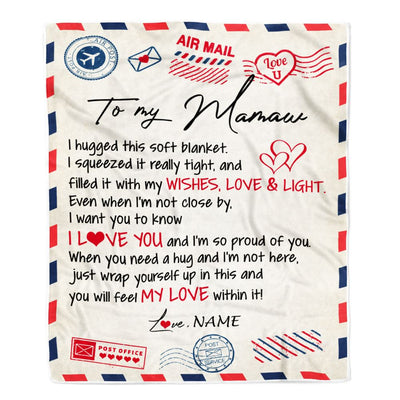 AIR MAIL
Love
U
To my Mamaw
I hugged this soft blanket.
I squeezed it really tight, and
filled it with my WISHES, LOVE & LIGHT.
Even when I'm not close by,
I want you to know
I L❤VE YOU and I'm so proud of you.
When you need a hug and I'm not here,
just wrap yourself up in this and
you will feel MY LOVE within it!
Love, NAME
POST OFFICE
POST
SERVICE